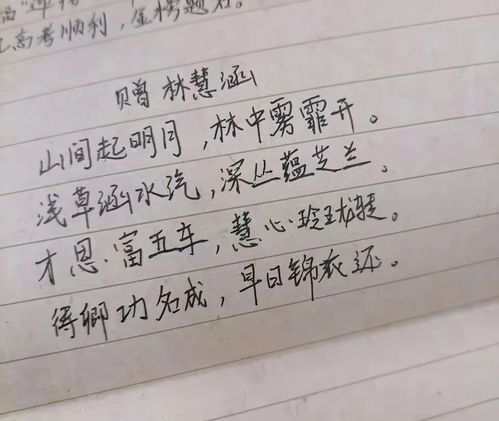 高考顺利，金榜题名。
赠 林慧涵
山间起明月，林中雾霏开。
浅草涵水汽，深丛蕴芝兰。
才思富五车，慧心玲珑璧。
得卿功名成，早日锦衣还。